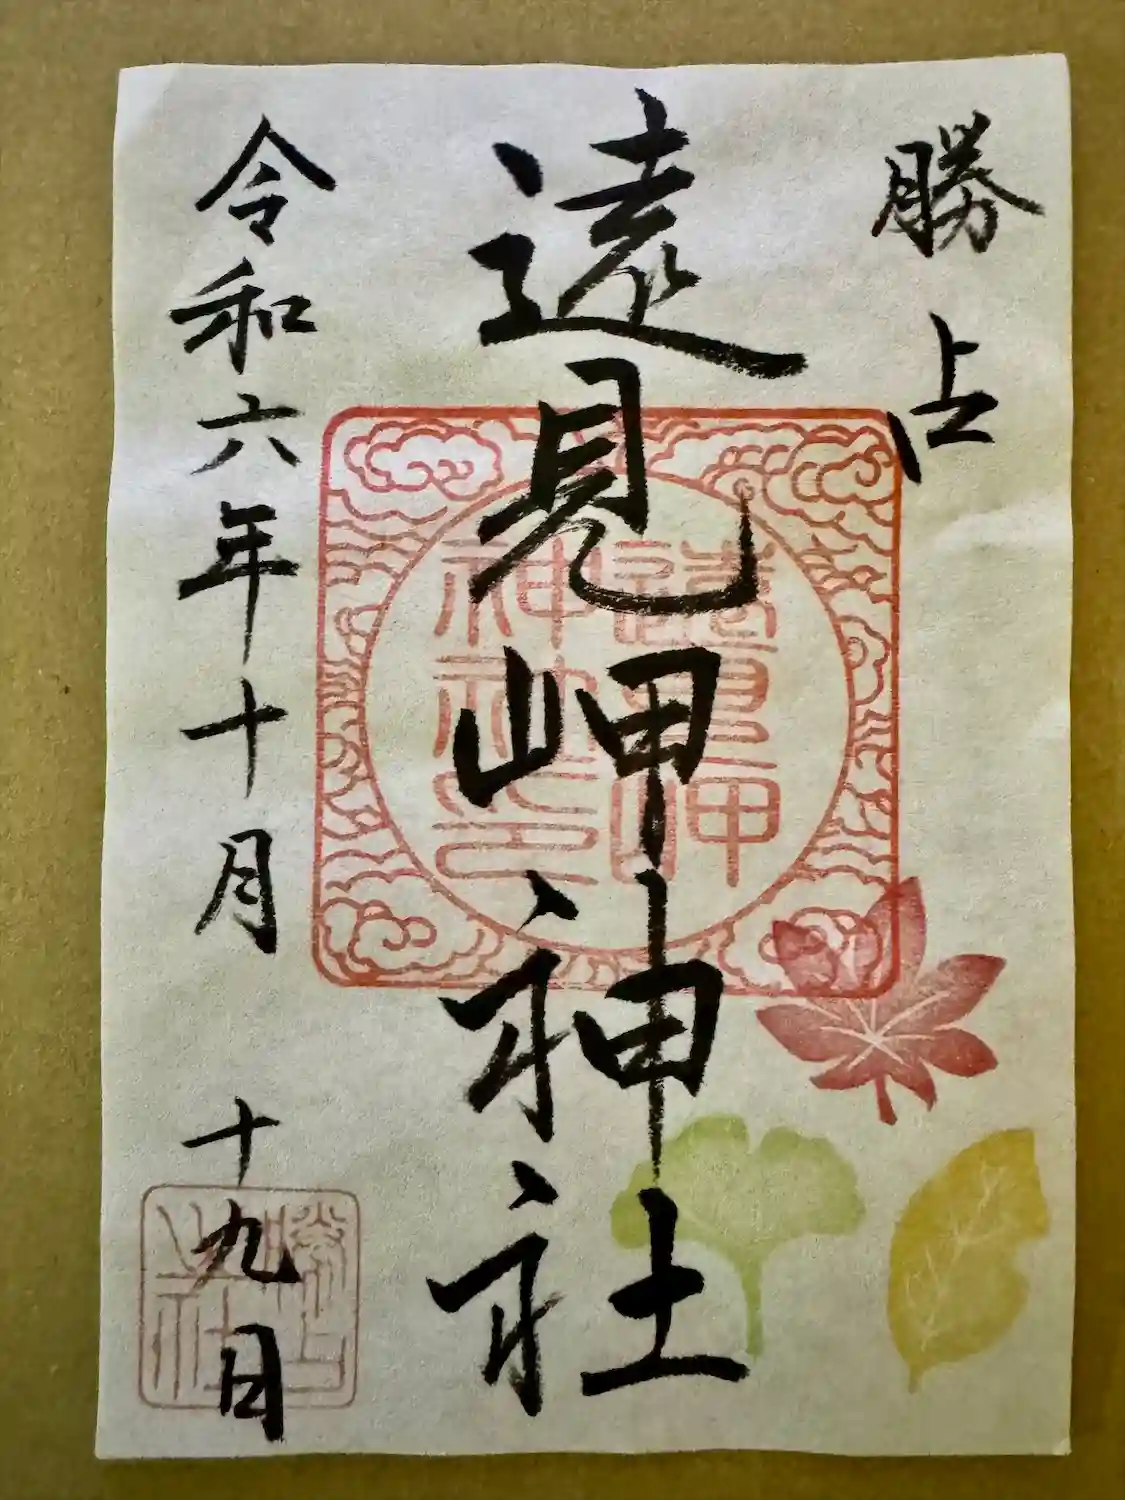 勝占
遠見岬神社
令和六年十月十九日
遠見岬
神社印